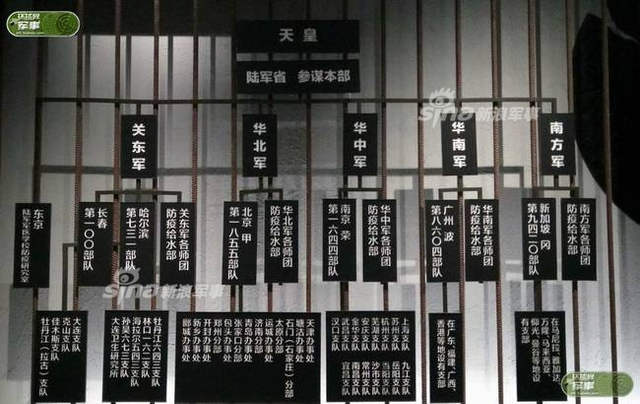 环球网
军事
天皇
陆军省 参谋本部
sina新浪军事
关东军
华北军
华中军
华南军
南方军
东京
陆军医学校防疫研究室
长春
第一〇〇部队
哈尔滨
第七三一部队
关东军各师团
防疫给水部
北京 甲
第一八五五部队
华北军各师团
防疫给水部
南京 荣
第一六四四部队
华中军各师团
防疫给水部
广州 波
第八六〇四部队
华南军各师团
防疫给水部
新加坡 冈
第九四二〇部队
南方军各师团
防疫给水部
大连支队
克山支队
佳木斯支队
牡丹江（拉古）支队
牡丹江六四三支队
林口一六二支队
海拉尔五四三支队
孙吴六七三支队
大连卫生研究所
天津办事处
塘沽办事处
石门（石家庄）分部
太原分部
运城办事处
济南分部
青岛办事处
张家口分部
包头办事处
郑州分部
开封办事处
新乡办事处
郾城办事处
上海支队
苏州支队
杭州支队
芜湖支队
安庆支队
金华支队
汉口支队
九江支队
岳阳支队
当阳支队
沙市支队
常州支队
南昌支队
宜昌支队
在广东、福建、广西、
香港等地设有支部
在马尼拉、雅加达
仰光、曼谷等地设
有支部
sina新浪军事